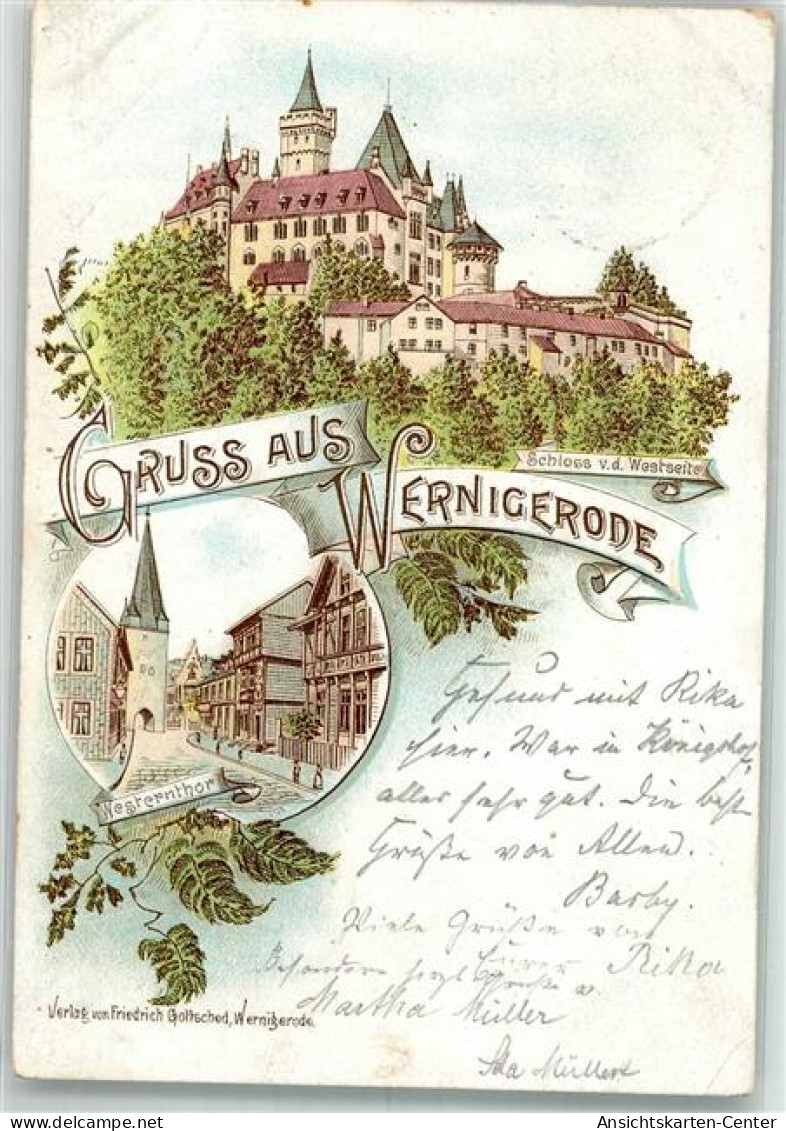 GRUSS AUS
WERNIGERODE
Schloss v.d. Westseite
Westernthor
Gesund mit Rika
hier. War in Königshof
alles sehr gut. Die best
Grüße von Allen.
Barby.
Viele Grüße von
Eurer Rika
Besonders herzl. Grüße v.
Martha Müller
Ida Müller
Verlag von Friedrich Gottsched, Wernigerode.
Ansichtskarten-Center